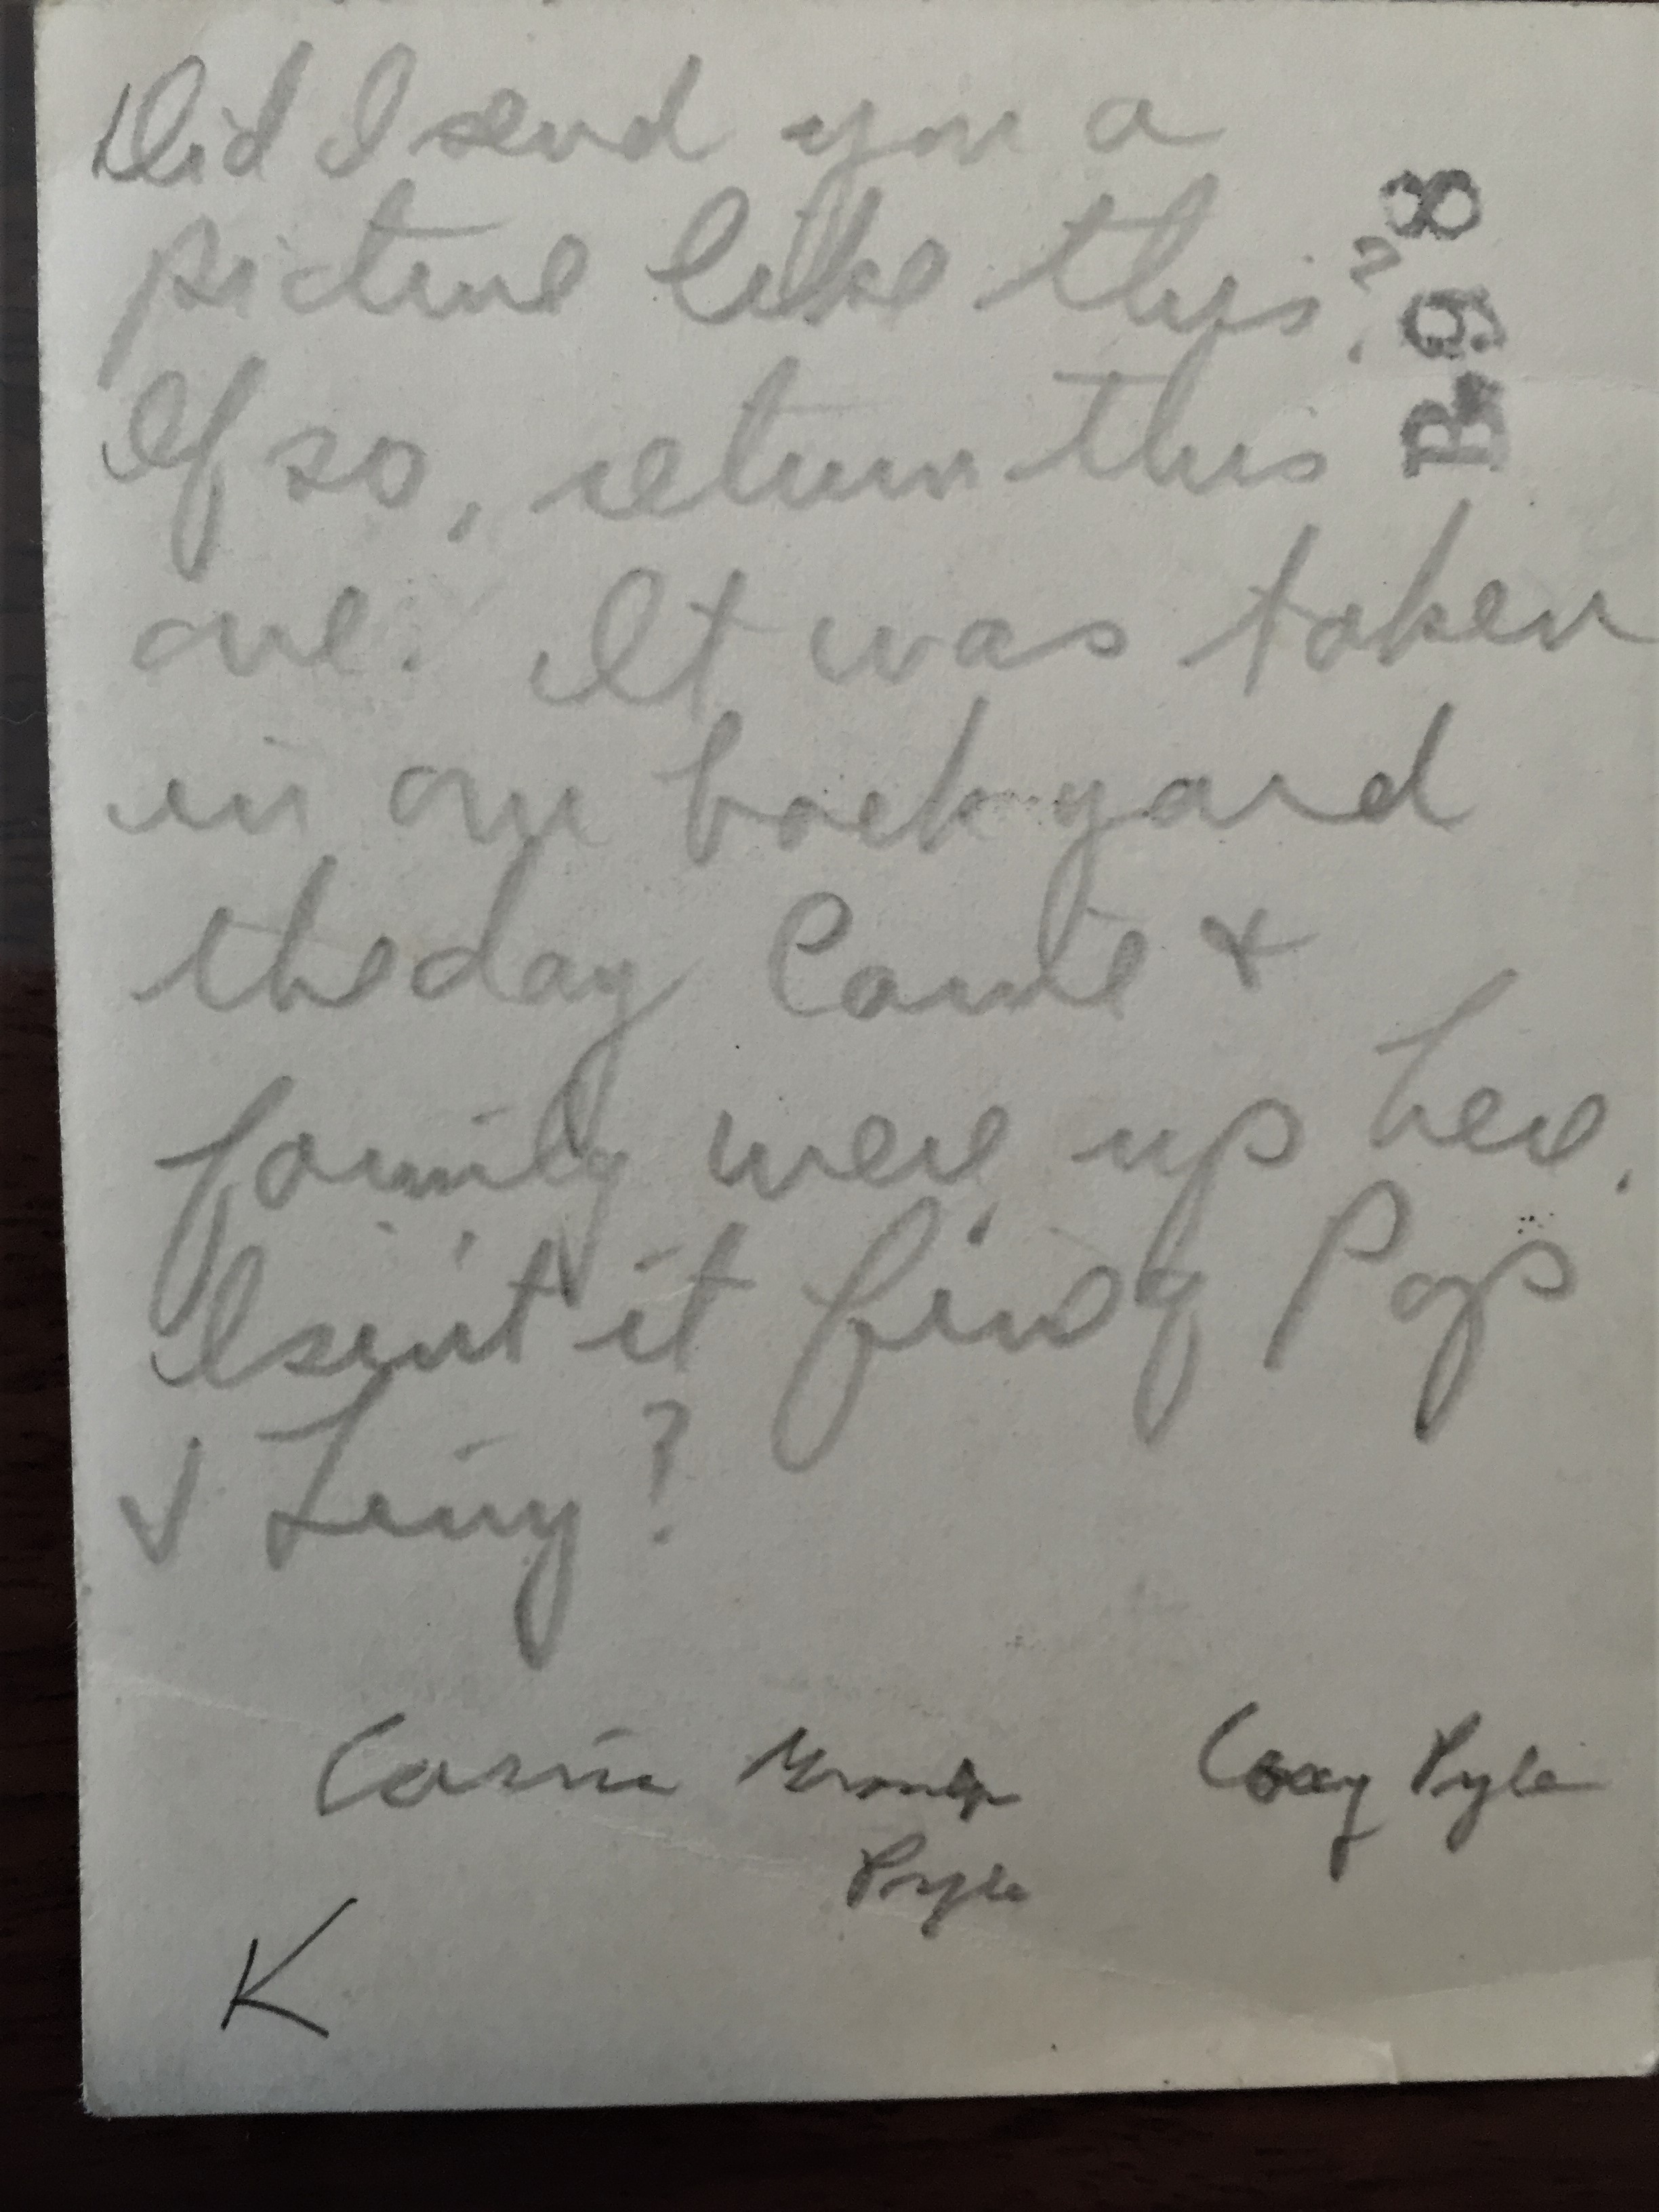 Did I send you a
picture like this?
If so, return this
one. It was taken
in our back yard
the day Carrie +
family were up here.
Isn't it fine of Pop
+ Liny?
B-98
Carrie Grandpa Coxy Pyle
Pyle
K